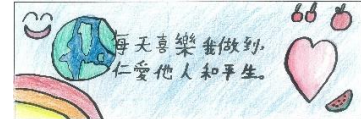 每天喜樂我做到,
仁愛他人和平生。